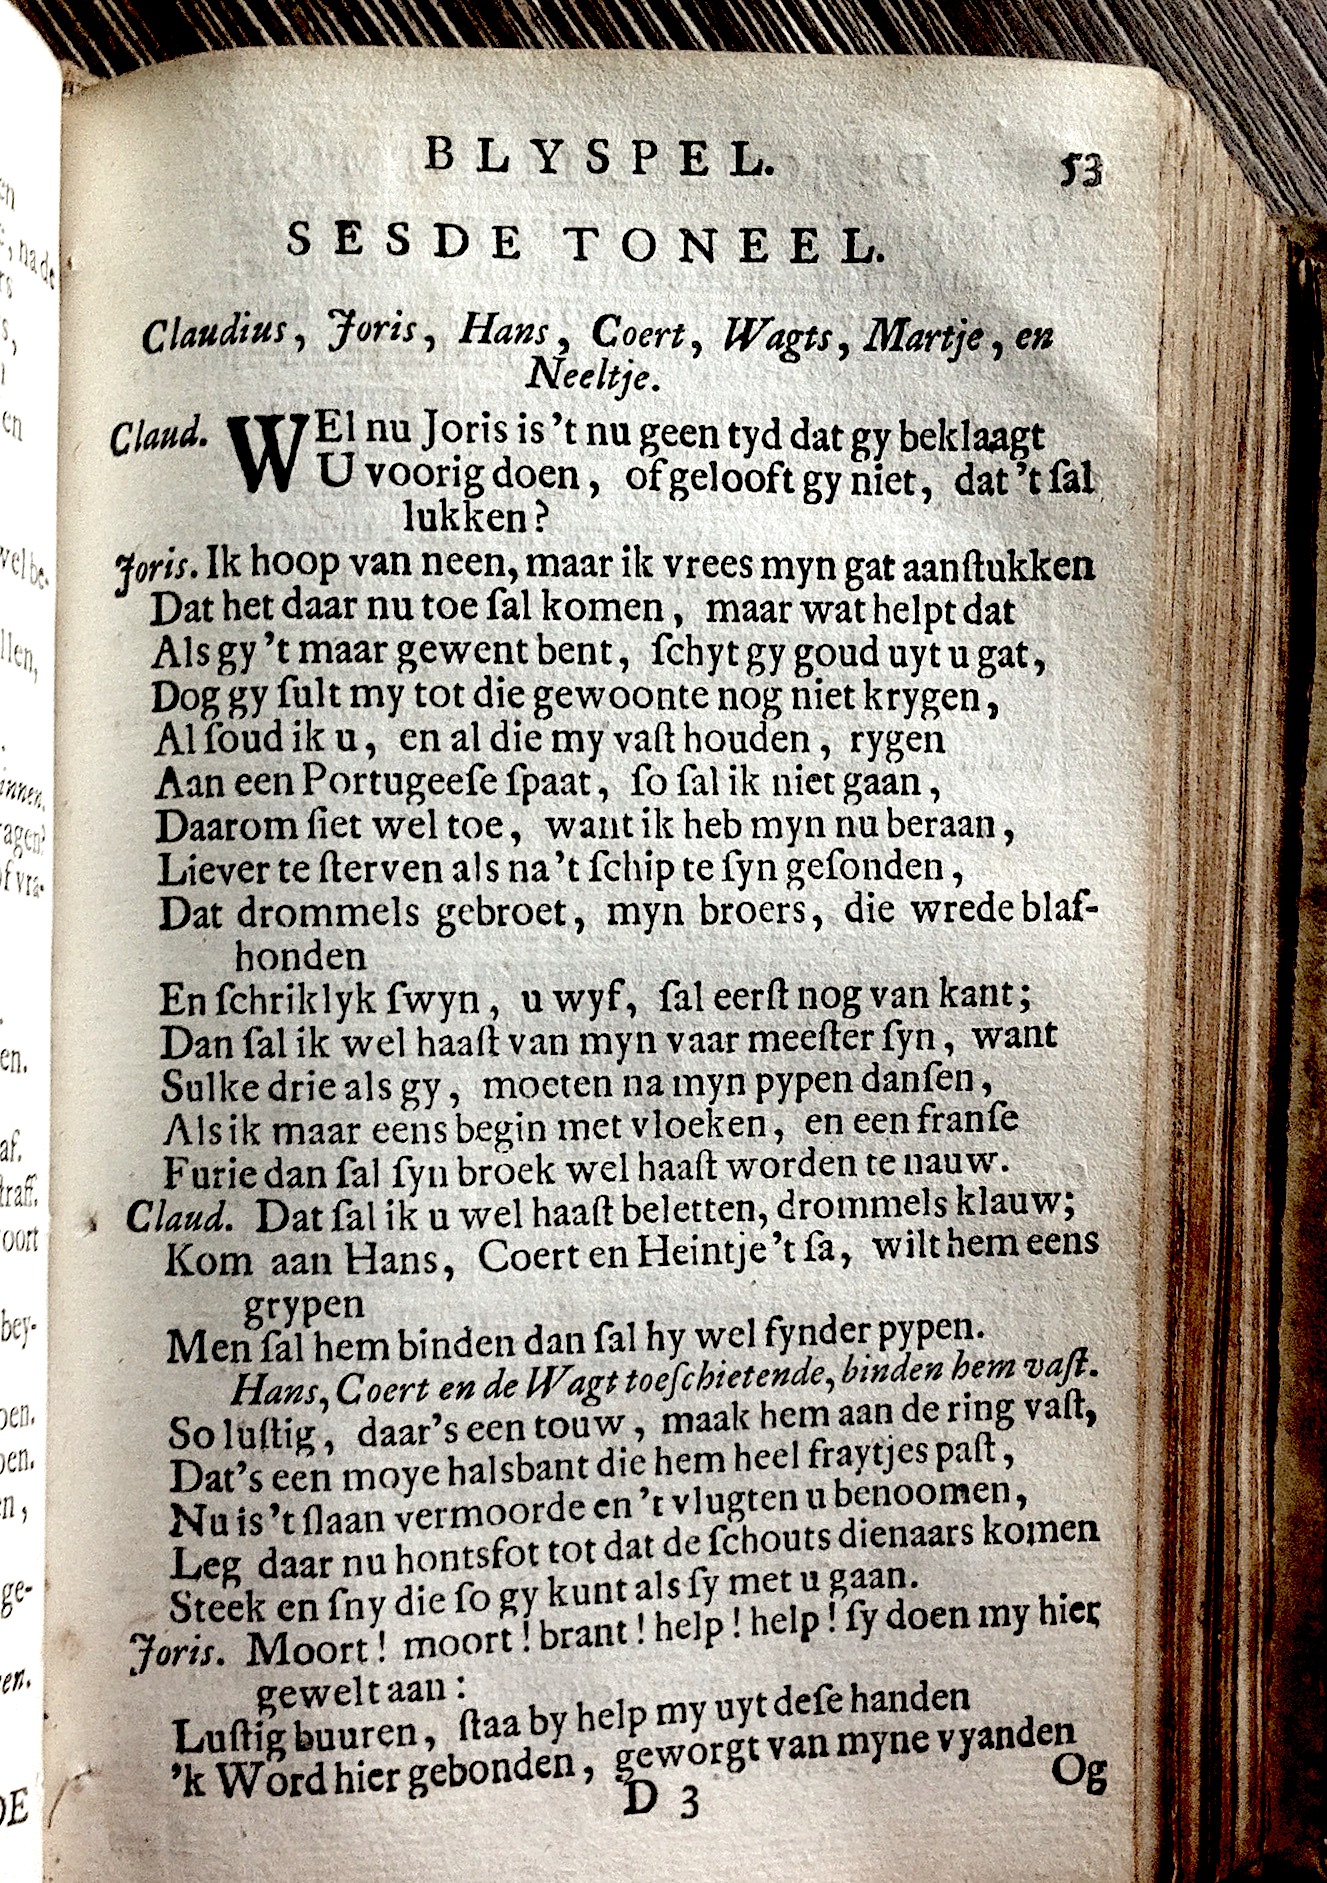 BLYSPEL. 53
SESDE TONEEL.
Claudius, Joris, Hans, Coert, Wagts, Martje, en
Neeltje.
Claud. WEl nu Joris is 't nu geen tyd dat gy beklaagt
U voorig doen, of gelooft gy niet, dat 't ſal
lukken?
Joris. Ik hoop van neen, maar ik vrees myn gat aanſtukken
Dat het daar nu toe ſal komen, maar wat helpt dat
Als gy 't maar gewent bent, ſchyt gy goud uyt u gat,
Dog gy ſult my tot die gewoonte nog niet krygen,
Al ſoud ik u, en al die my vaſt houden, rygen
Aan een Portugeeſe ſpaat, ſo ſal ik niet gaan,
Daarom ſiet wel toe, want ik heb myn nu beraan,
Liever te ſterven als na 't ſchip te ſyn geſonden,
Dat drommels gebroet, myn broers, die wrede blaf-
honden
En ſchriklyk ſwyn, u wyf, ſal eerſt nog van kant;
Dan ſal ik wel haaſt van myn vaar meeſter ſyn, want
Sulke drie als gy, moeten na myn pypen danſen,
Als ik maar eens begin met vloeken, en een franſe
Furie dan ſal ſyn broek wel haaſt worden te nauw.
Claud. Dat ſal ik u wel haaſt beletten, drommels klauw;
Kom aan Hans, Coert en Heintje 't ſa, wilt hem eens
grypen
Men ſal hem binden dan ſal hy wel fynder pypen.
Hans, Coert en de Wagt toeſchietende, binden hem vaſt.
So luſtig, daar's een touw, maak hem aan de ring vaſt,
Dat's een moye halsbant die hem heel fraytjes paſt,
Nu is 't ſlaan vermoorde en 't vlugten u benoomen,
Leg daar nu hontsfot tot dat de ſchouts dienaars komen
Steek en ſny die ſo gy kunt als ſy met u gaan.
Joris. Moort! moort! brant! help! help! ſy doen my hier
gewelt aan:
Luſtig buuren, ſtaa by help my uyt deſe handen
'k Word hier gebonden, geworgt van myne vyanden
D 3 Og